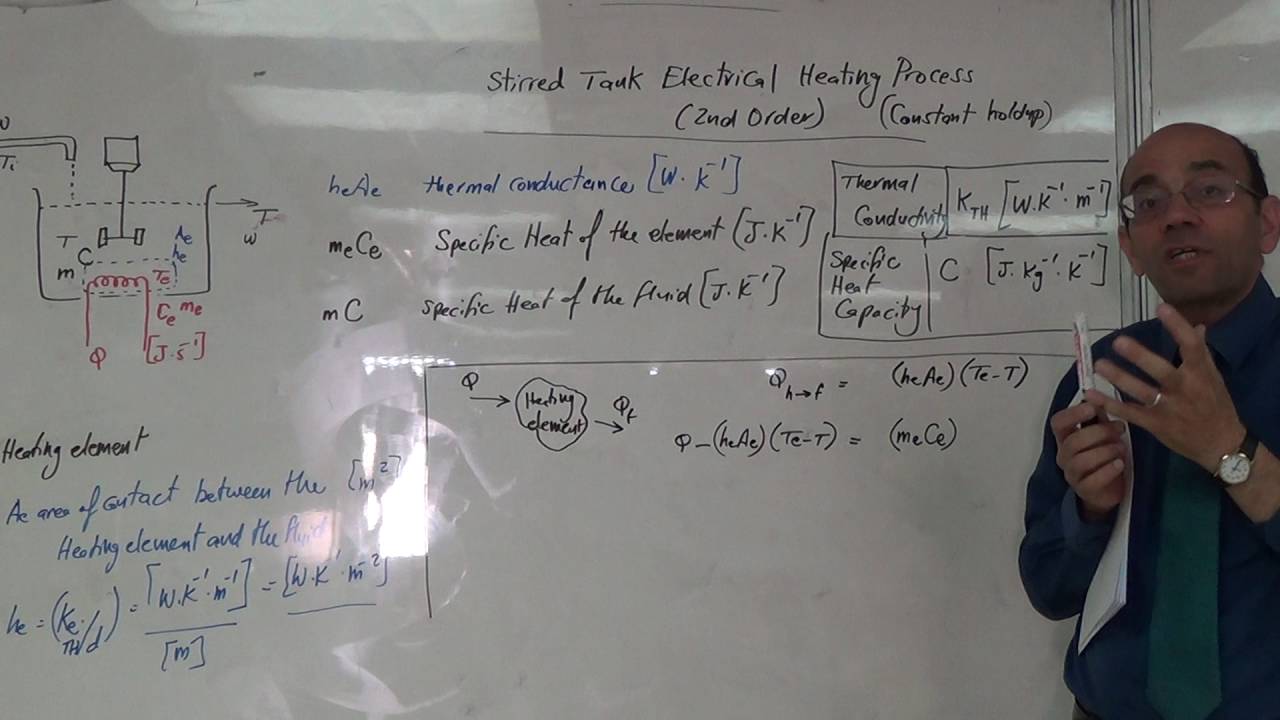 Stirred Tank Electrical Heating Process
(2nd Order) (Constant holdup)
heAe thermal conductance [W. K⁻¹]
meCe Specific Heat of the element [J.K⁻¹]
mC specific Heat of the fluid [J.K⁻¹]
Thermal Conductivity K_TH [W.K⁻¹.m⁻¹]
Specific Heat Capacity C [J. Kg⁻¹. K⁻¹]
ω
Ti
T
ω
T
C
m
Ae
he
Te
Ce me
φ [J.s⁻¹]
Heating element
Ae area of contact between the [m²]
Heating element and the fluid
he = (Ke TH/d) = [W.K⁻¹.m⁻¹] / [m] = [W.K⁻¹.m⁻²]
φ → Heating element → φf
φ h→f = (heAe)(Te-T)
φ-(heAe)(Te-T) = (meCe)